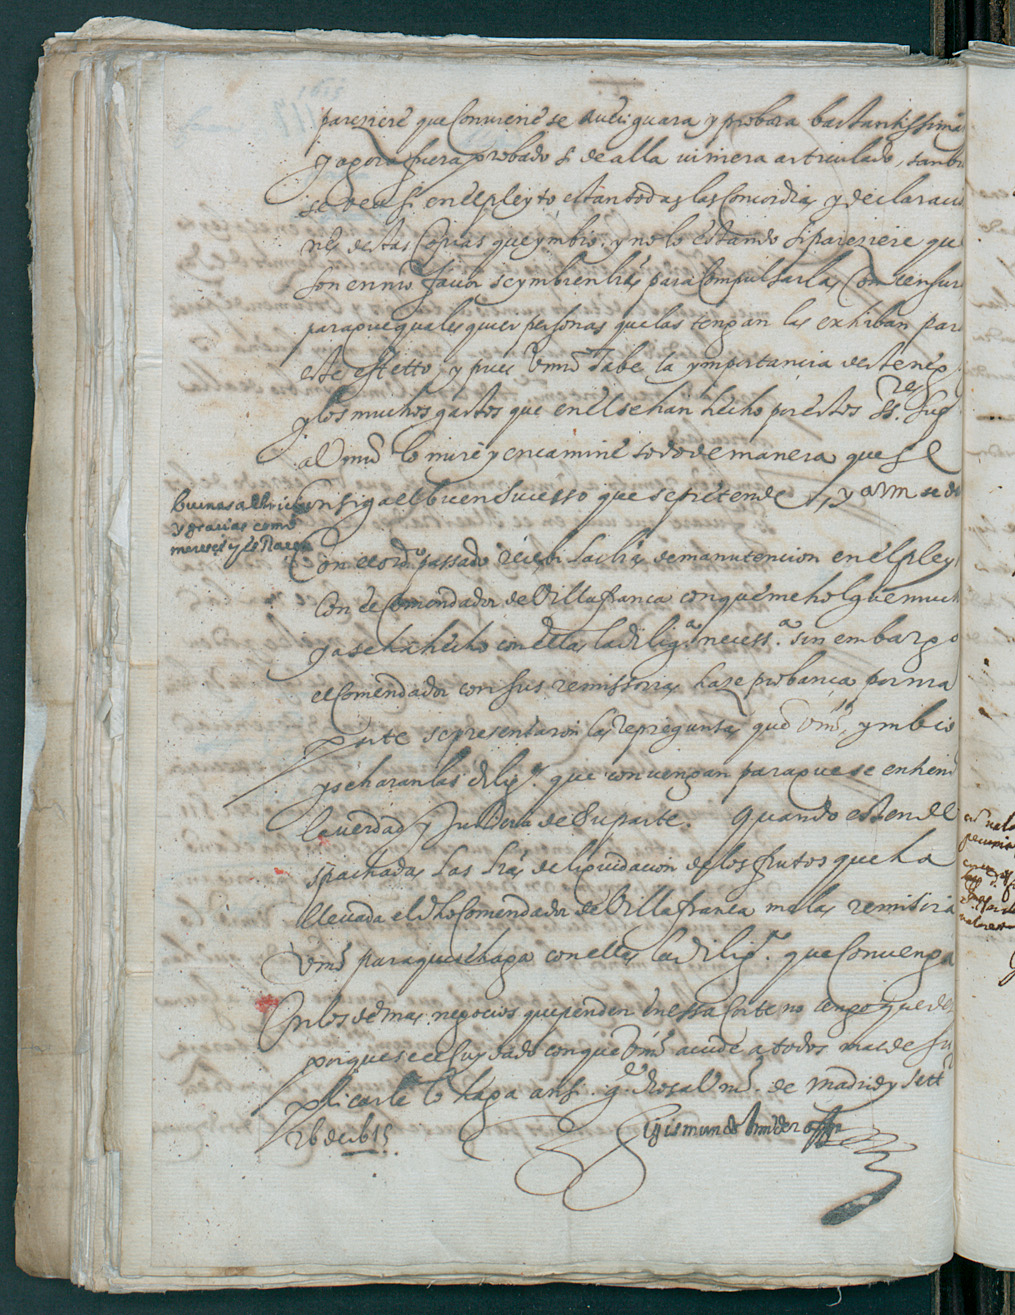 1615
117
pareziere que Conviene se averiguara y probara bastantissima
y agora fuera probado si de alla viniera articulado, tanbi
se vea si en el pleyto estan todas las Concordias y declaracio
nes destas Copias que ymbio, y no lo estando si pareziere que
son en nro favor se ymbien lras para Compulsarlas Con censur
para que quales quier personas que las tengan las exhiban par
este effetto, y pues Vmd sabe la ymportancia deste neg
y los muchos gastos que en el se han hecho por estos SS.res Sup
a Vmd lo mire y encamine todo de manera que se
Consiga el buen sucesso que se pretende, y a Vm se de
buenas albricias
y gracias como
merece y se
Con el ord.o passado recebi las lras de manutencion en el pley
Con el Comendador de Villafranca con que me holgue much
ya se ha hecho con ellas la dilig.a necess.a sin embargo
el Comendador con sus remissorias haze probança por nra
parte se presentaron las repreguntas que Vmd, ymbio
y se haran las dilig.s que convengan para que se entiend
la verdad y Justicia de su parte. Quando esten de
spachadas las lras de liquidacion de los frutos que ha
llevado el dho Comendador de Villafranca me las remitira
Vmd para que se haga con ellas la dilig.a que Convenga
En los demas negocios que penden en essa Corte no tengo que de
porque se el cuydado con que Vmd acude a todos mas de su
plicarle lo haga ansi. g.de Dios a Vmd. de Madrid y sett.e
26 de 615